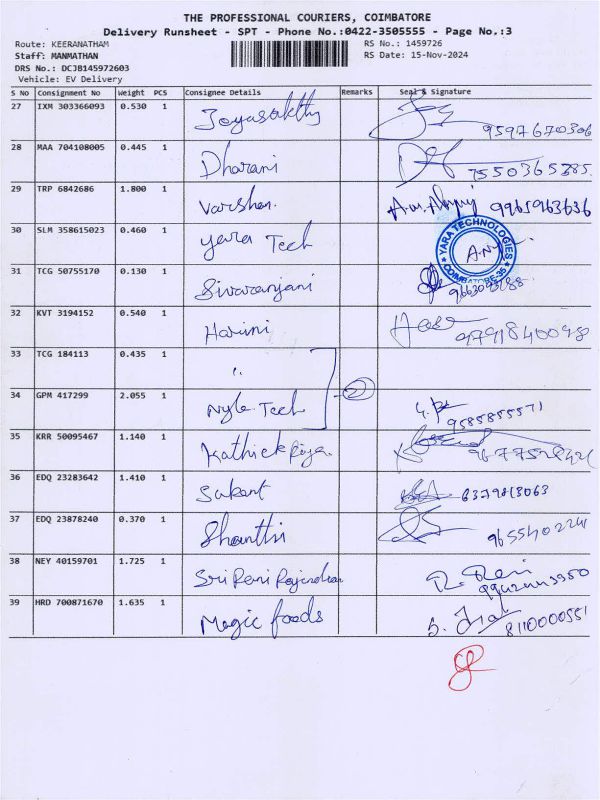 THE PROFESSIONAL COURIERS, COIMBATORE
Delivery Runsheet - SPT - Phone No.:0422-3505555 - Page No.:3
Route: KEERANATHAM RS No.: 1459726
Staff: MANMATHAN RS Date: 15-Nov-2024
DRS No.: DCJB145972603
Vehicle: EV Delivery
S No Consignment No Weight PCS Consignee Details Remarks Seal & Signature
27 IXM 303366093 0.530 1 Jayasakthy 9597670306
28 MAA 704108005 0.445 1 Dharani 7550365285.
29 TRP 6842686 1.800 1 Varsha. 9965963636
30 SLM 358615023 0.460 1 Yara Tech YARA TECHNOLOGIES COIMBATORE-35
31 TCG 50755170 0.130 1 Sivaranjani
32 KVT 3194152 0.540 1 Harini 9791840098
33 TCG 184113 0.435 1 "
34 GPM 417299 2.055 1 Nyle Tech 2 9585855571
35 KRR 50095467 1.140 1 Kathick Priya.
36 EDQ 23283642 1.410 1 Sukant 6379813063
37 EDQ 23878240 0.370 1 Shanthi 9655402241
38 NEY 40159701 1.725 1 Sri Rani Rajendran
39 HRD 700871670 1.635 1 Magic foods 8110000551